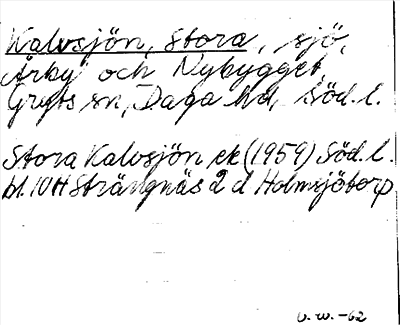 Kalvsjön, Stora, sjö,
Årby och Nybygget,
Gryts sn, Daga hd, Söd. l.
Stora Kalvsjön ek (1959) Söd. l.
bl. 10 H Strängnäs 2 d Holmsjötorp
U. W. -62